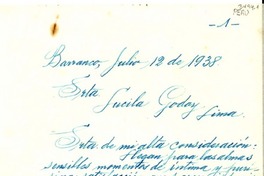 -1-
PERÚ
Barranco, Julio 12 de 1938
Srta
Lucila Godoy
Lima.
Srta de mi alta consideración:
Llegan para las almas
sensibles momentos de íntima y